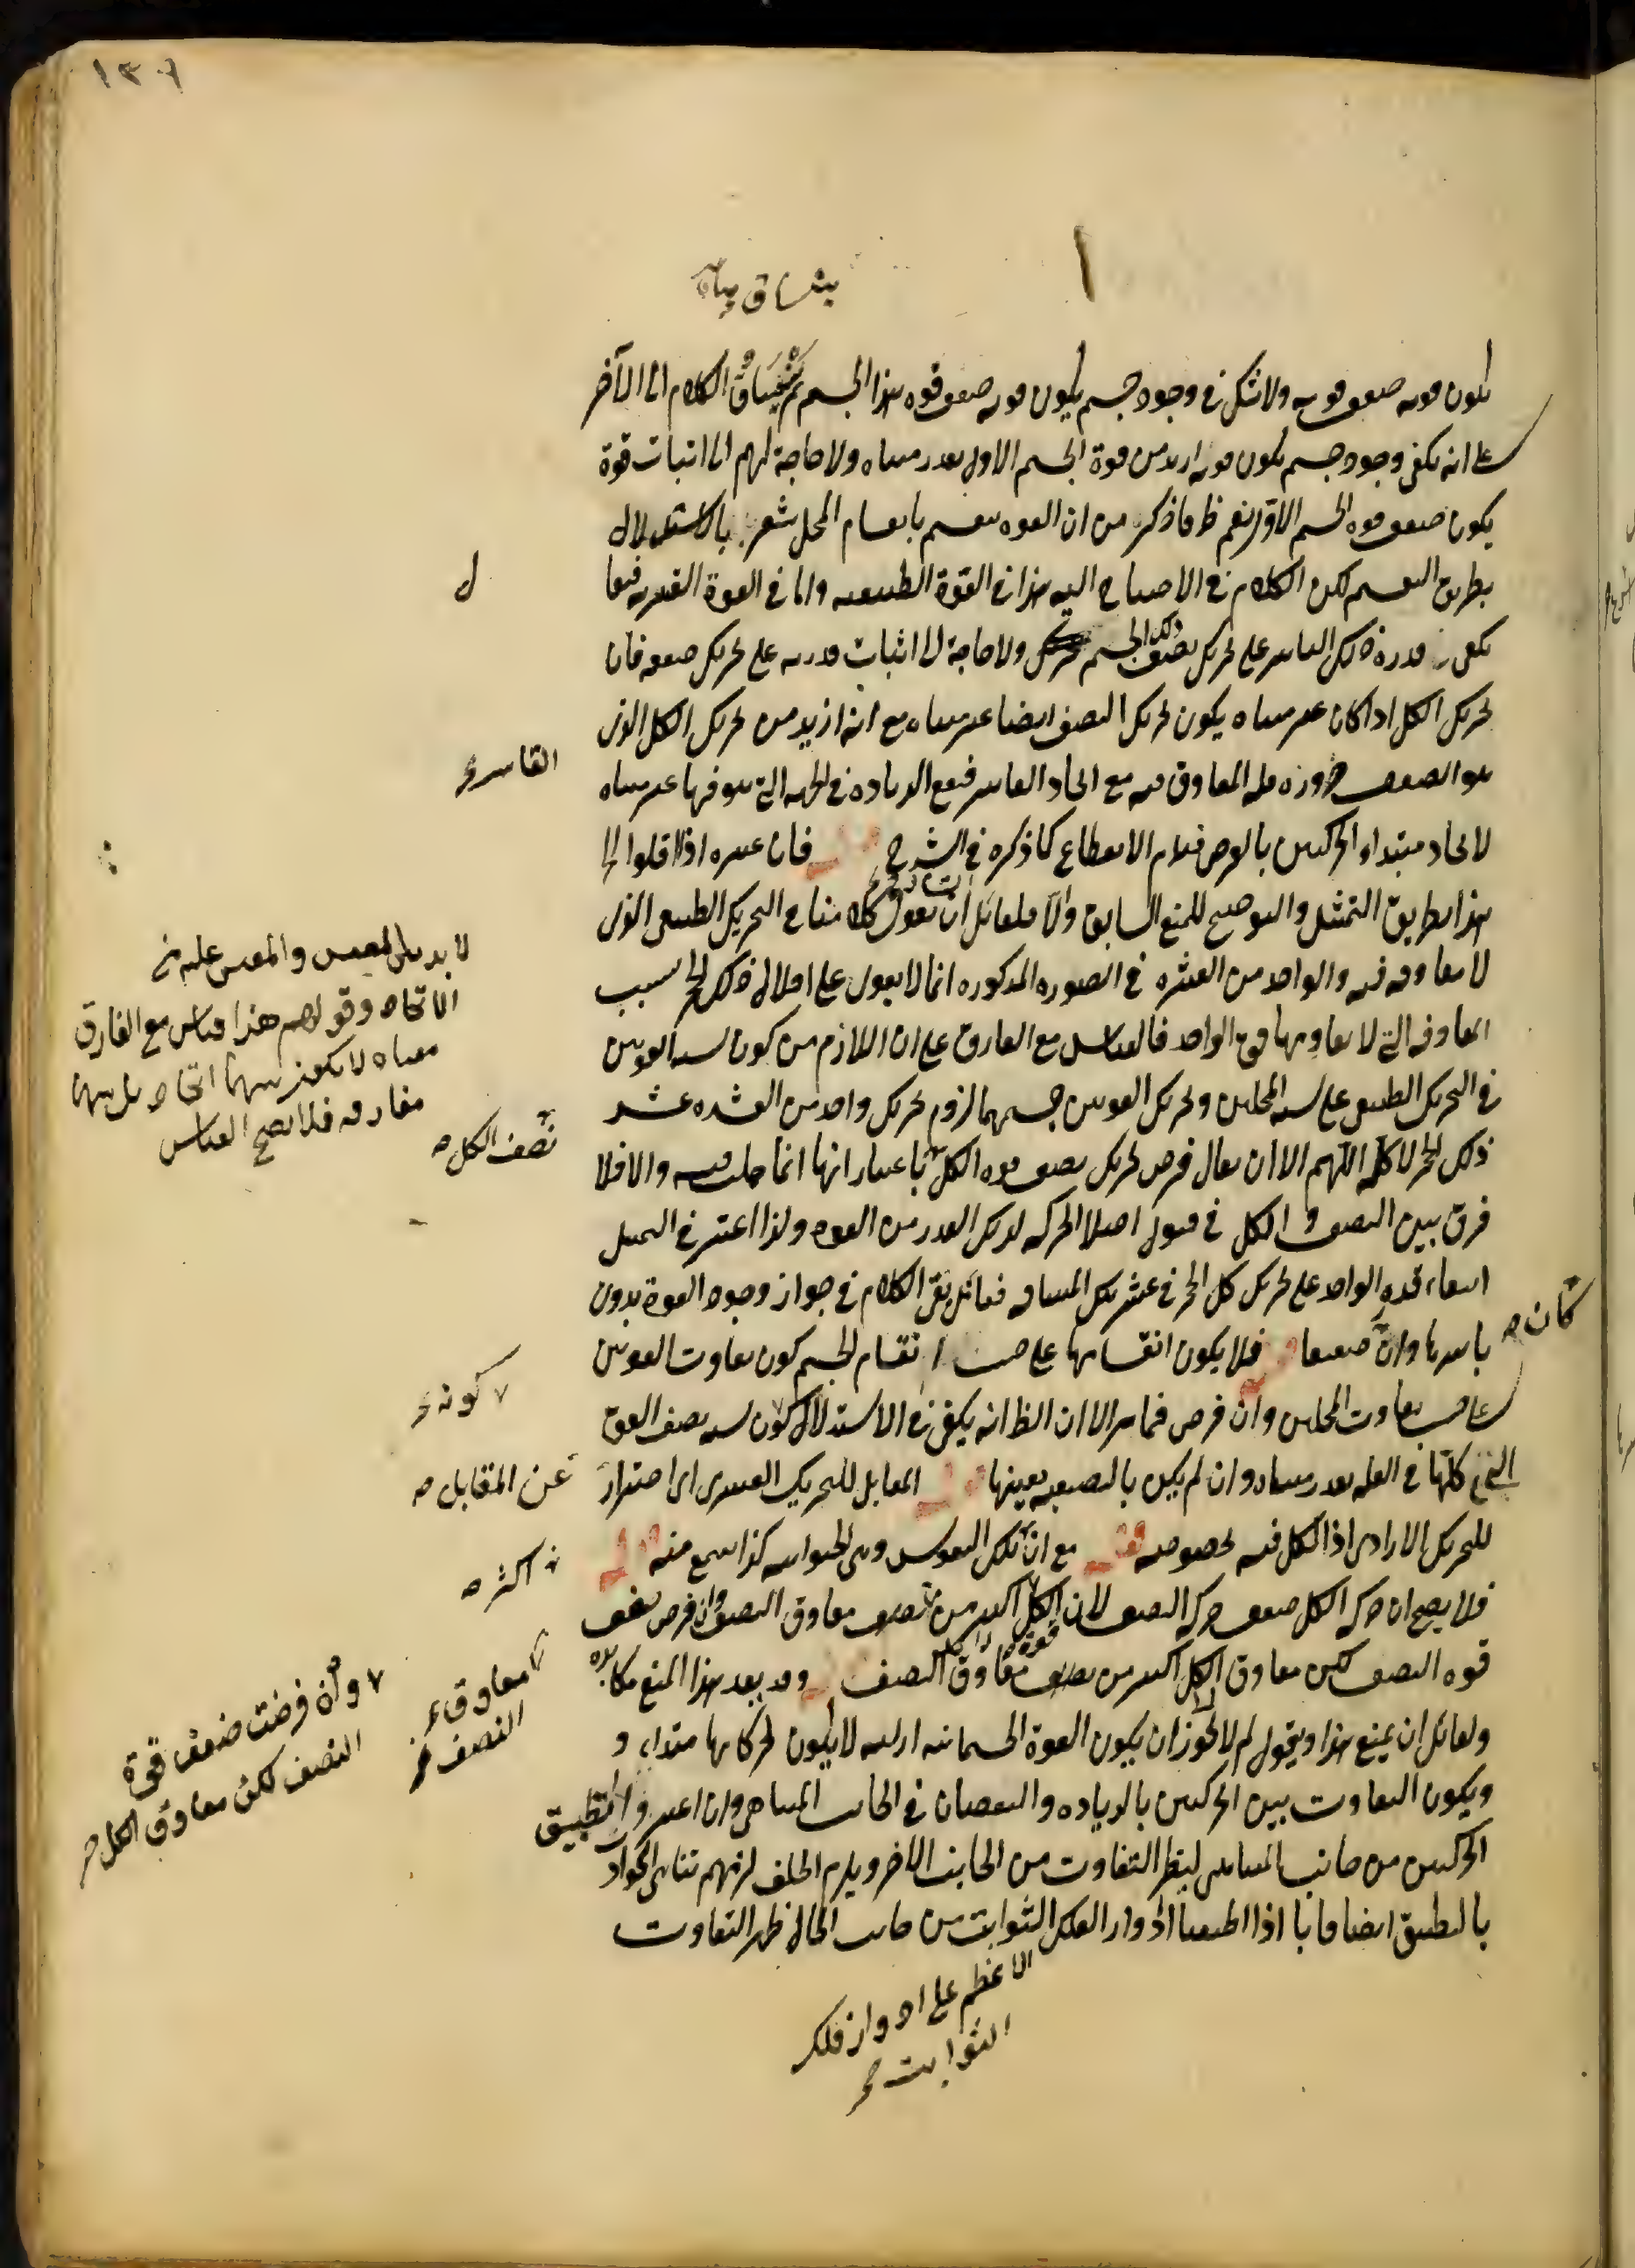 ١٣٠٦
يكون قوته ضعف قوته ولا شك في وجود جسم يكون قوته ضعف قوة هذا الجسم ثم يساق الكلام الى الآخر
على انه يكفى وجود جسم يكون قوته ازيد من قوة الجسم الاول بقدر متناه ولا حاجة لهم الى اثبات قوة
يكون ضعف قوة الجسم الاول نعم ظ ما ذكر من ان القوة تنقسم بانقسام المحل يشعر بالاستدلال
بطريق التقسيم لكن الكلام في الاحتياج اليه هذا في القوة الطبيعية واما في القوة القسرية فيما
يكفى قدرة ذلك القاسر على تحريك نصف ذلك الجسم ولا حاجة الى اثبات قدرته على تحريك ضعفه فان
تحريك الكل اذا كان غير متناه يكون تحريك النصف ايضا غير متناه مع انه ازيد من تحريك الكل الذى
هو الضعف ضرورة قلة المعاوق فيه مع اتحاد القاسر فيقع الزيادة في الجهة التى هو فيها غير متناه
القاسر
لاتحاد مبتداء الحركتين بالفرض فيلزم الانقطاع كما ذكره في الشرح فان عشرة اذا اقلوا
هذا بطريق التمثيل والتوضيح للمنع السابق والا فلقائل ان يقول كلامنا في التحريك الطبيعى الذى
لا معاوقه فيه والواحد من العشرة في الصورة المذكورة انما لا يقوى على اقلال ذلك الحجر بسبب
المعاوقة التى لا يعاومها قوة الواحد فالقياس مع الفارق على ان اللازم من كون نسبة القوتين
في التحريك الطبيعى على نسبة المحلين وتحريك القوتين جسميهما لزوم تحريك واحد من العشرة عشر
ذلك الحجر لا كله اللهم الا ان يقال فرض تحريك نصف قوة الكل باعتبار انها انما حلت فيه والا فلا
نصف الكل
فرق بين النصف والكل في قبول اصل الحركة لذلك القدر من القوة ولذا اعتبر في التمثيل
انتفاء قدرة الواحد على تحريك كل الحجر في عشر تلك المسافة فتأمل بقى الكلام في جواز وجود القوة بدون
باسرها وان كان ضعيفا فلا يكون انقسامها على حسب انقسام الجسم كون تفاوت القوتين
على حسب تفاوت المحلين وان فرض فمامر الا ان الظ انه يكفى في الاستدلال كون نسبة نصف القوة
كونه
الى كلها في القلة بقدر متناه وان لم يكن بالنصفية بعينها المقابل للتحريك القسرى اى احتراز
عن المقابل
للتحريك الارادى اذ الكل فيه بخصوصه مع ان تلك النفوس وهى الحيوانية كذا سمع منه
فلا يصح ان حركة الكل ضعف حركة النصف لان الكل اكثر من نصف معاوق النصف وان فرض ضعف
اكثر
قوة النصف لكن معاوق الكل اكثر من نصف معاوق النصف وقد يعد هذا المنع مكابرة
ولقائل ان يمنع هذا ويقول لم لا يجوز ان يكون القوة الجسمانية ازلية لا يكون لحركاتها مبتداء و
ويكون التفاوت بين الحركتين بالزيادة والنقصان في الجانب المتناهى وان اعتبروا التطبيق
الحركتين من جانب المتناهى ليظهر التفاوت من الجانب الآخر ويلزم الخلف لزمهم تناهى الحوادث
بالتطبيق ايضا فانا اذا طبقنا ادوار الفلك الثوابت من جانب الحال ظهر التفاوت
الاعظم على ادوار فلك
الثوابت
لا بد بين المقيس والمقيس عليه في
الاتحاد وقولهم هذا قياس مع الفارق
معناه لا يكون بينهما اتحاد بل بينهما
مفارقه فلا يصح القياس
كان
معاوق
النصف
وان فرضت ضعف قوة
النصف لكن معاوق الكل